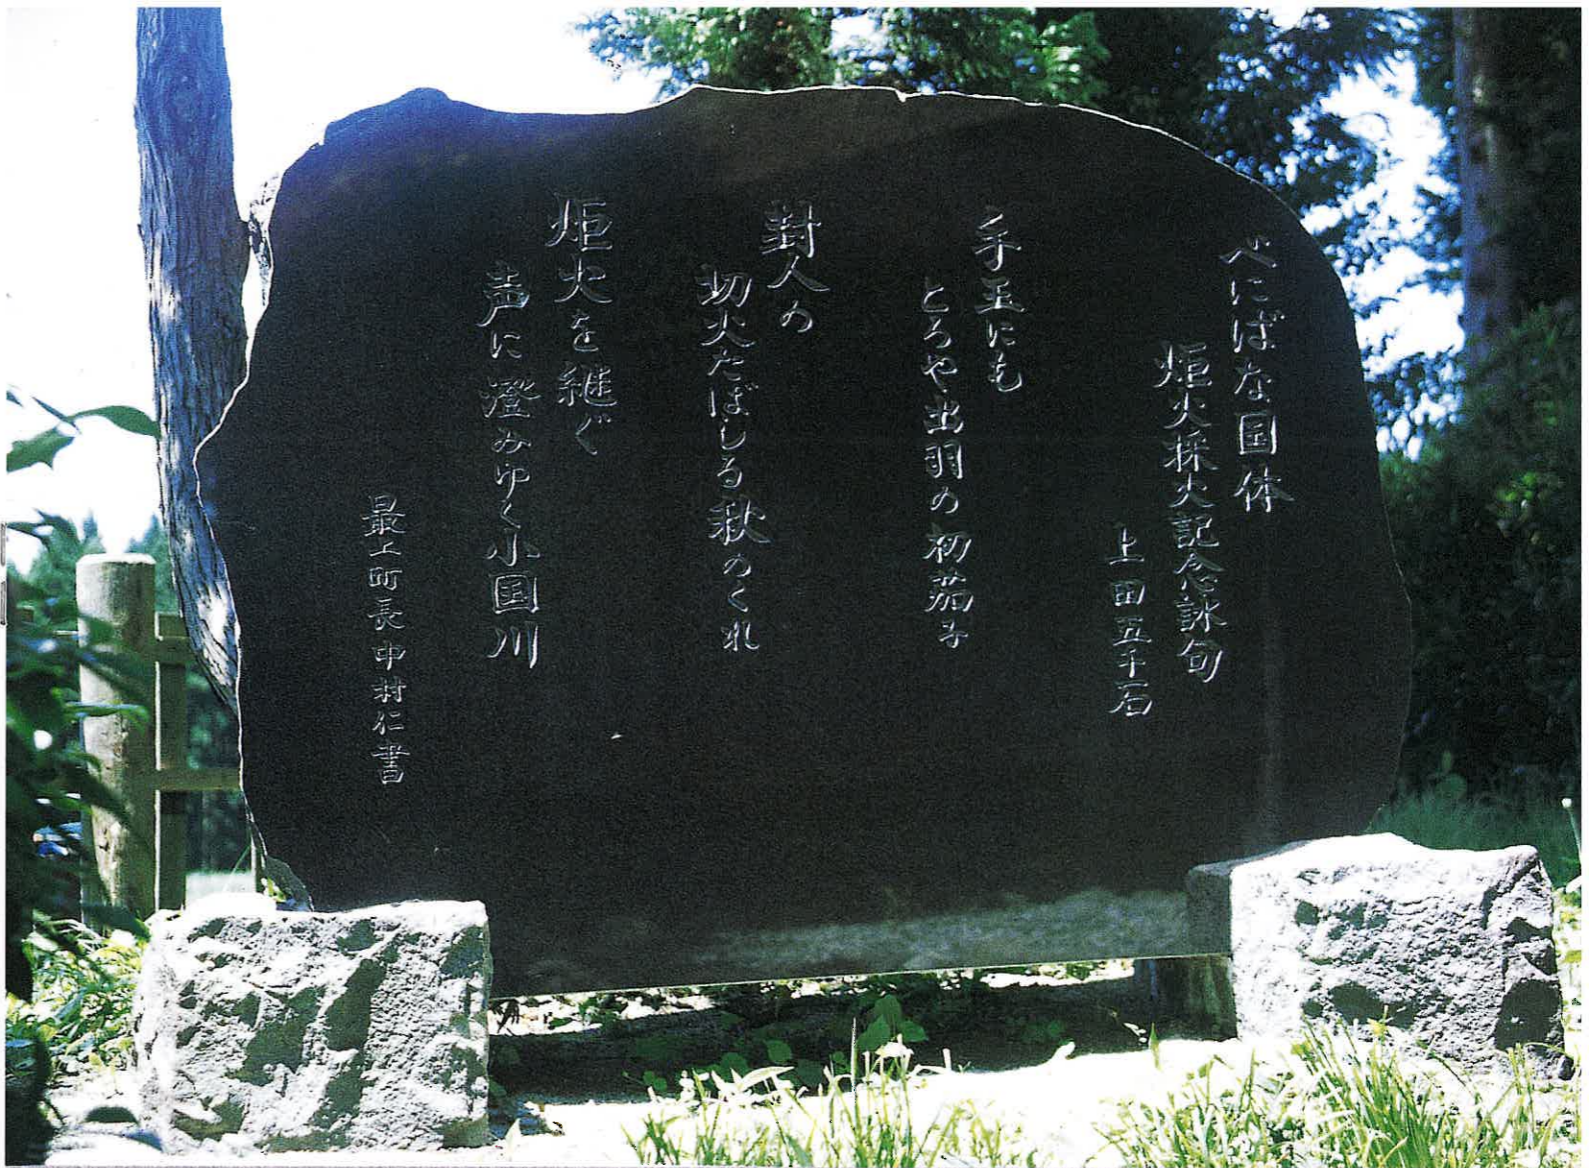 べにばな国体
炬火採火記念詠句
上田五千石
手玉にも
とるや出羽の初茄子
封人の
切火たばしる秋のくれ
炬火を継ぐ
声に澄みゆく小国川
最上町長中村仁書